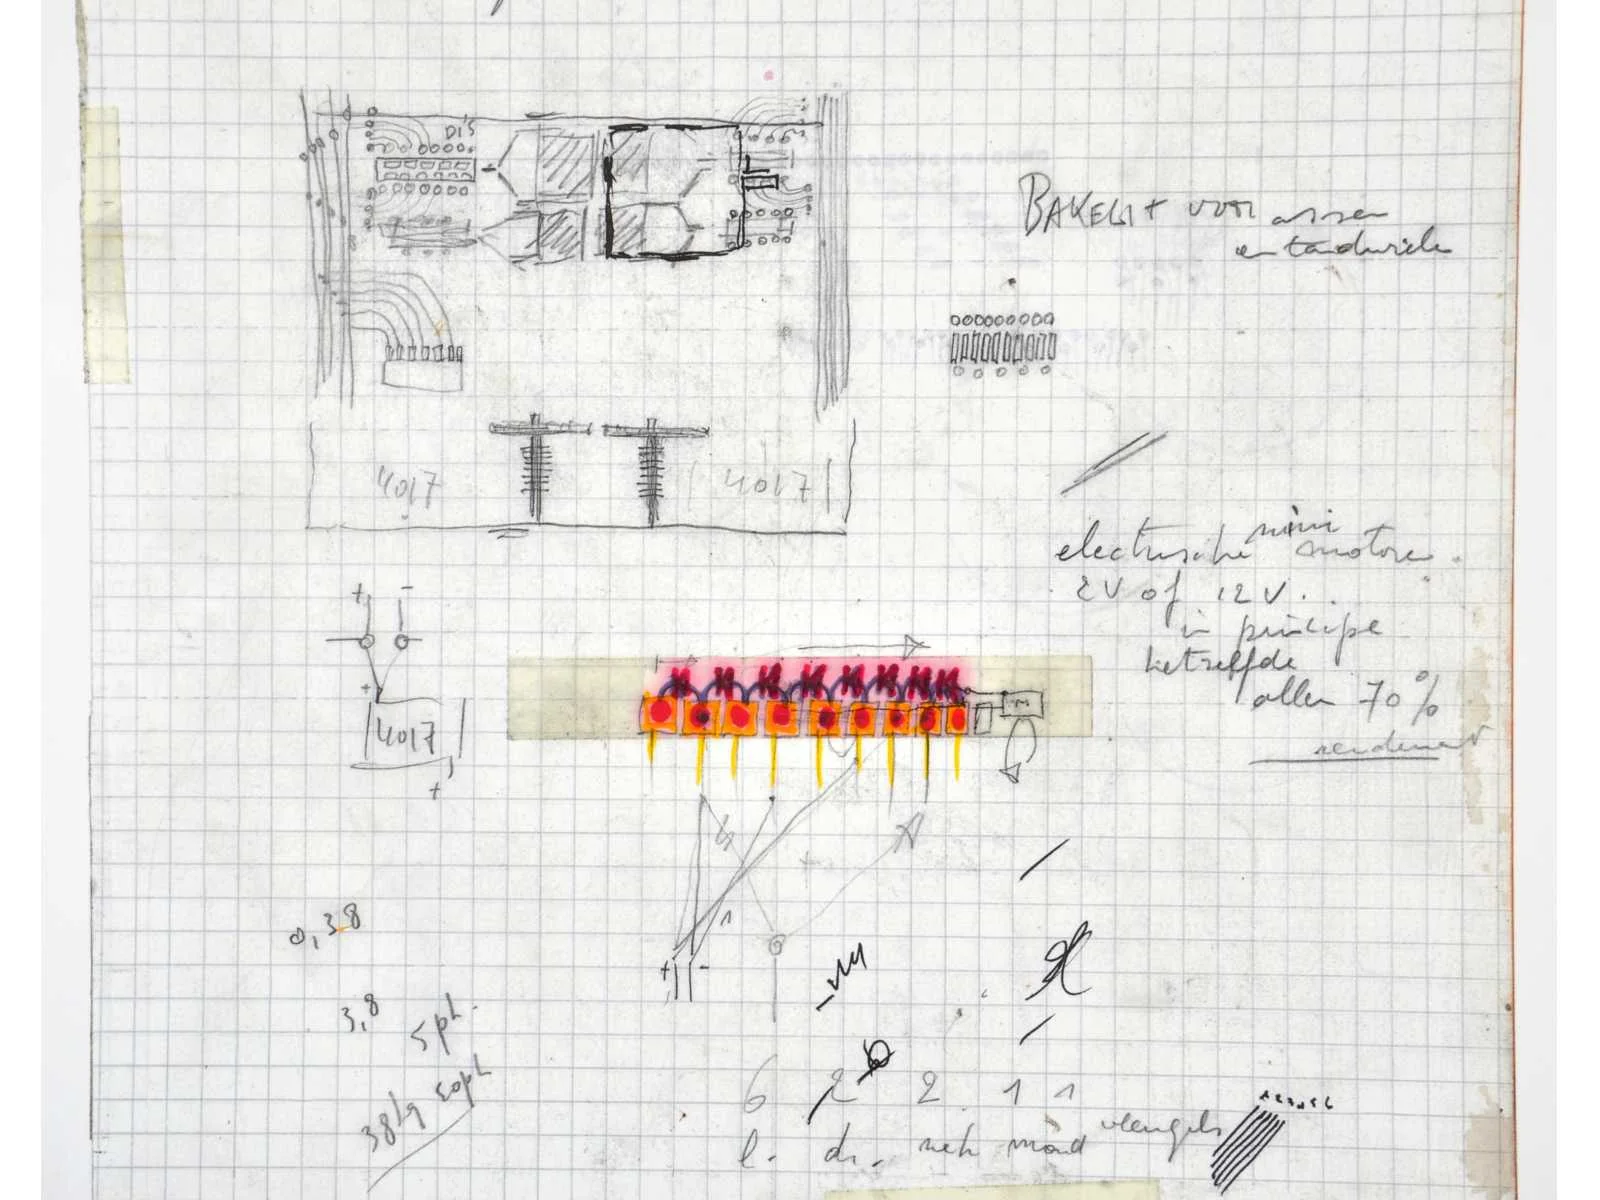 DI'S
BAKELIT voor assen
en tandwiele
4017
4017
electrische mini motore
2V of 12V.
in principe
betreffde
allen 70%
rendement
+ -
+
4017
+
M
0,38
+ -
3,8 5 ph.
38kg 50ph
6 2 2 1 1
l. di. nek mond vleugels